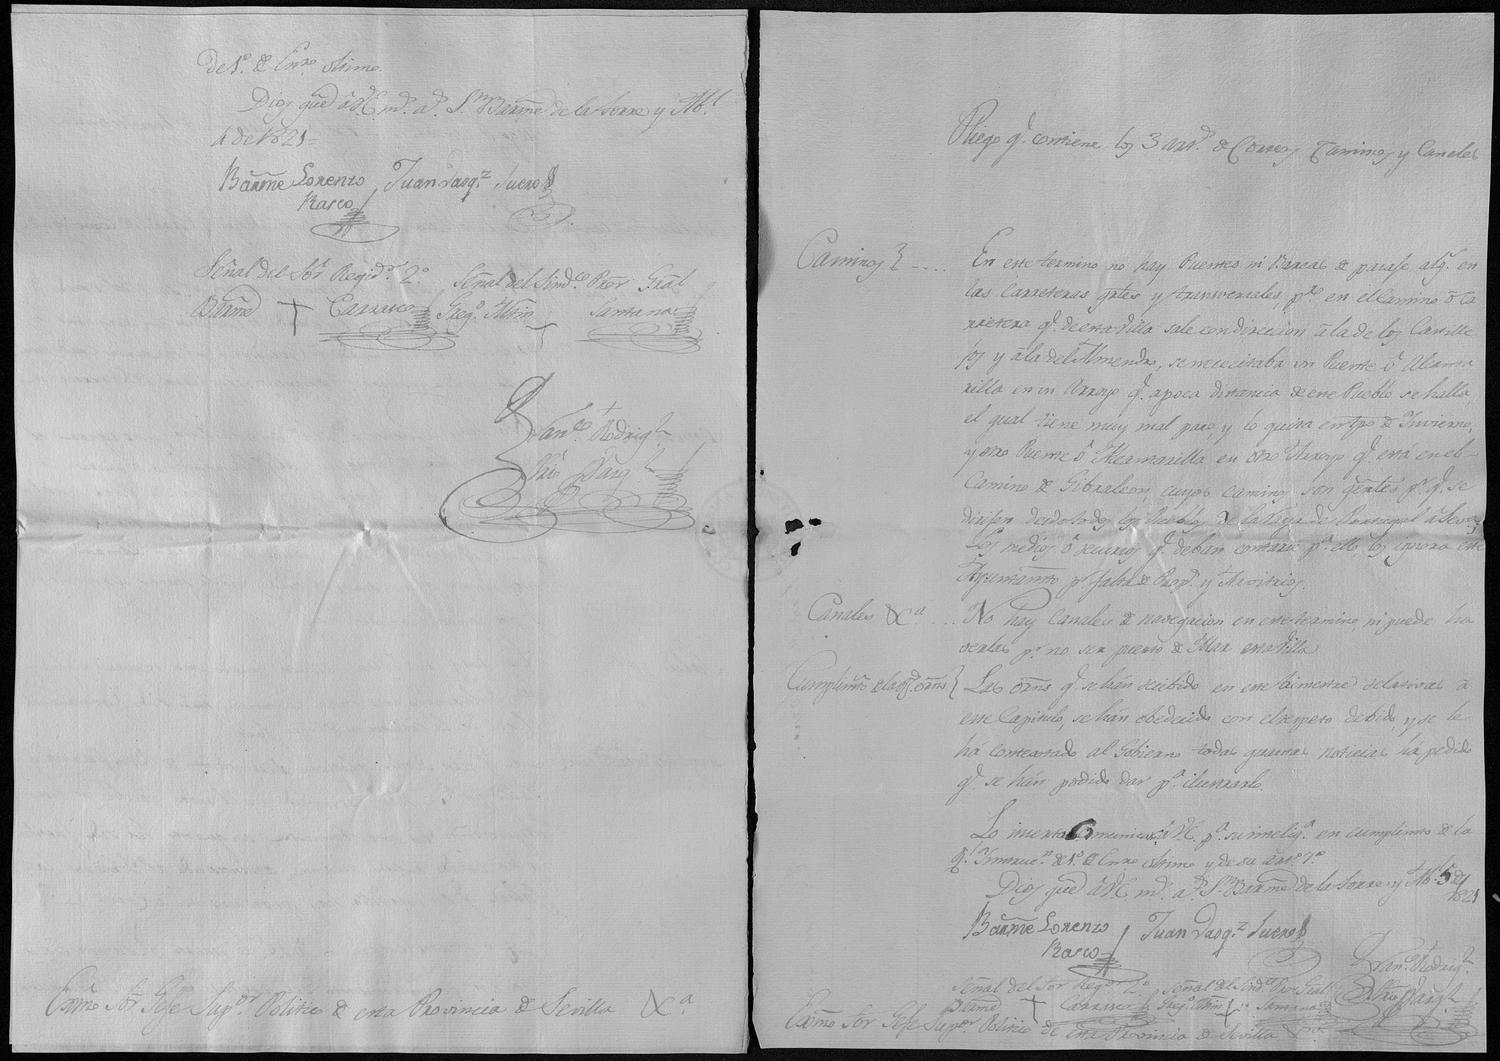 de 1º. de Enrº. ultimo.
Dios gue. á V.E. ms. as. Sn. Barme. de la Torre y Abl.
4 de 1821=
Barme Lorenzo Juan Vasqz. Suero
Rasco
Señal del Sor. Regidr. 2º. Señal del Sindco. Pror. Gral
Barme + Carrasco Gregº. Mñn + Santana
Franco. Rodrigz.
Srio
Exmo Sor. Gefe Supor. Politico de esta Provincia de Sevilla &a.
Pliego q. contiene los 3 arts. de Correos Caminos y Canales
Caminos } .... En este termino no hay Puentes ni Barcas de pasage algº. en
las Carreteras grles y transversales, pro. en el Camino ó ca
rretera q. de esta Villa sale con direccion á la de los Castille
jos y á la del Almendro, se necesitaba un Puente ó Alcanta
rilla en un Arroyo q. apoca distancia de este Pueblo se halla,
el qual tiene muy mal paso, y lo quita en tpo. de Invierno,
y otro Puente ó Alcantarilla en otro Arroyo q. está en el
Camino de Gibraleon, cuyos caminos son gerales pr. q. se
dirijen desde todos los Pueblos de la Raya de Portugal á Seva.
Los medios ó recursos q. deban contarse pa. ello, los ignora este
Ayuntamto. pr. falta de Props. y Arvitrios.
Canales &a. .... No hay Canales de navegacion en este termino, ni puede ha
verlas pr. no ser puerto de Mar esta Villa
Cumplimto. de las orns } Las orns q. se hán recibido en este trimestre relativas á
este Capitulo, se hán obedecido con el respeto debido, y se le
há contestado al Gobierno todas quantas noticias há pedido
q. se hán podido dar pa. ilustrarlo.
Lo inserto comunicamos á V.E. pa. su inteliga. en cumplimto de la
Instrucn. de 1º. de Enrº. ultimo y de su arto. 7º.
Dios gue. á V.E. ms. as. Sn. Barme. de la Torre y Abl. 5 de
1821
Barme Lorenzo Juan Vasqz. Suero
Rasco Franco. Rodrigz.
Señal del Sor Regor. 2º. Señal del Sindco. Pror Gral
Barme + Carrasco Gregº. Mñn + Santana Srio
Exmo Sor Gefe Supor. Politico de esta Provincia de Sevilla &a.